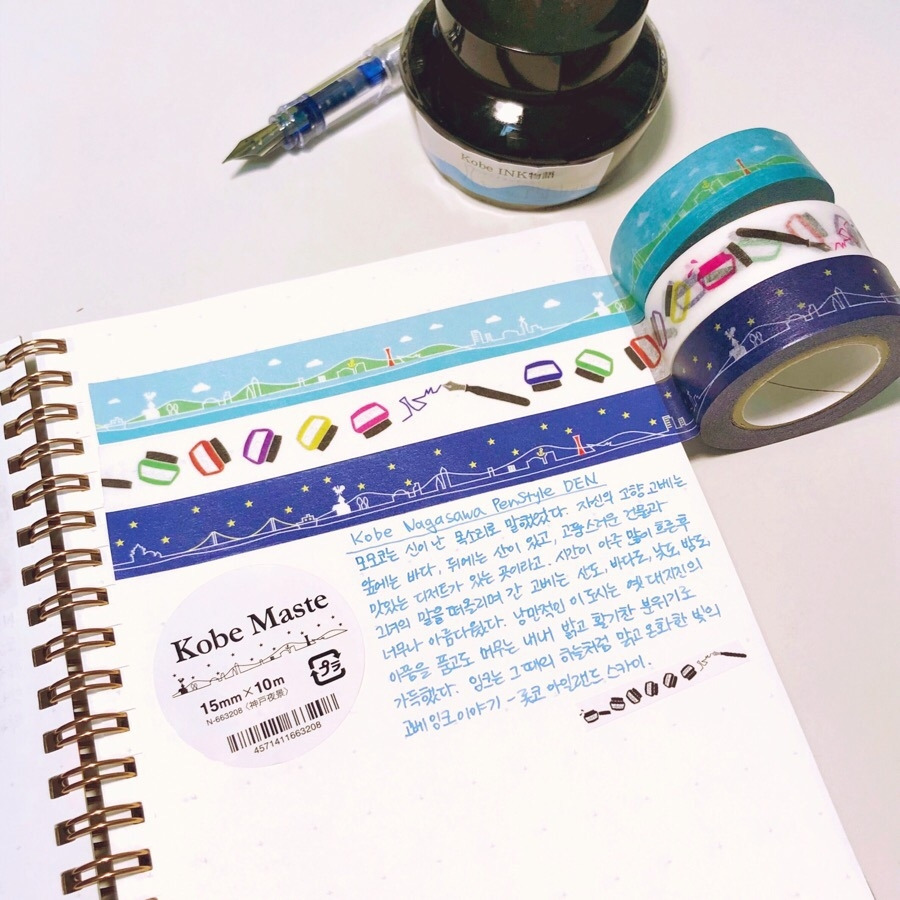 Kobe INK物語
Kobe Nagasawa PenStyle DEN
모모코는 신이 난 목소리로 말했었다. 자신의 고향 고베는
앞에는 바다, 뒤에는 산이 있고, 고풍스러운 건물과
맛있는 디저트가 있는 곳이라고. 시간이 아주 많이 흐른 후
그녀의 말을 떠올리며 간 고베는 산도, 바다도, 낮도, 밤도,
너무나 아름다웠다. 낭만적인 이 도시는 옛 대지진의
아픔을 품고도 머무는 내내 밝고 활기찬 분위기로
가득했다. 잉크는 그 때의 하늘처럼 맑고 온화한 빛의
고베 잉크 이야기 - 롯코 아일랜드 스카이.
Kobe Maste
プラ
15mm×10m
N-663208〈神戸夜景〉
4571411663208